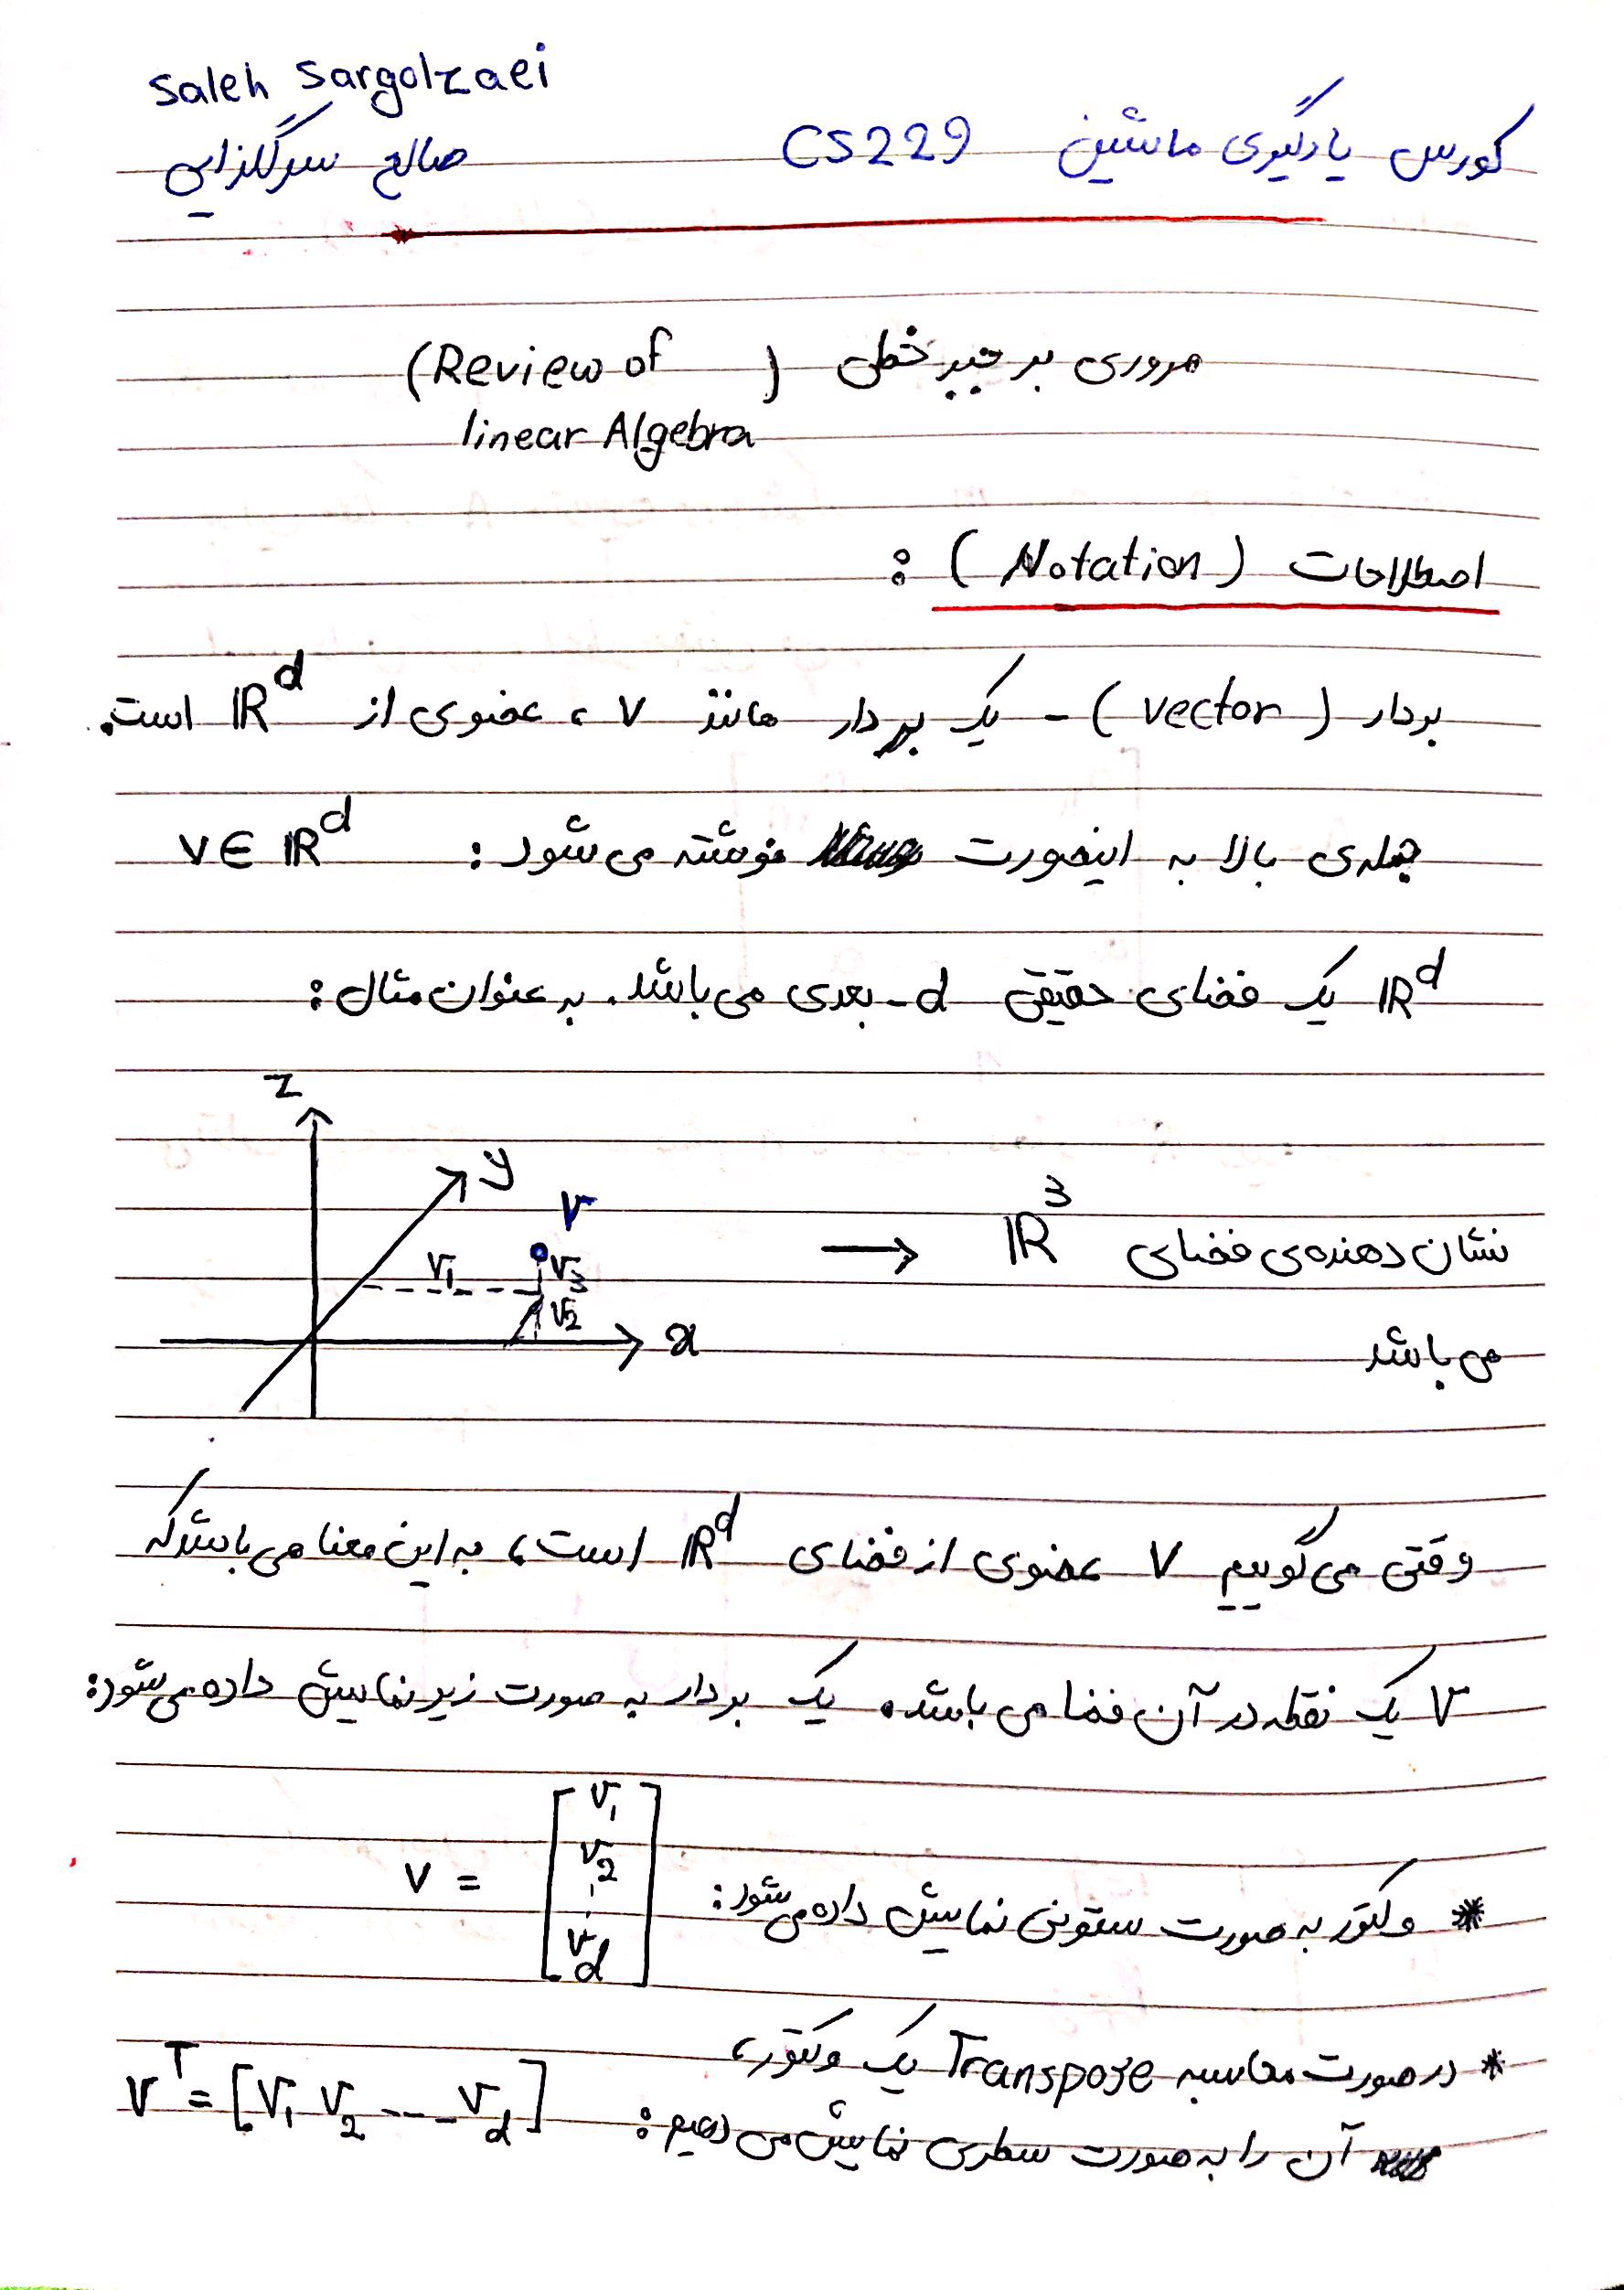 Saleh Sargolzaei
کورس یادگیری ماشین CS229
صالح سرگلزایی
مروری بر جبر خطی (Review of
linear Algebra)
اصطلاحات (Notation) :
بردار (vector) - یک بردار مانند v ، عضوی از ℝᵈ است.
جمله‌ی بالا به اینصورت نوشته می‌شود : v ∈ ℝᵈ
ℝᵈ یک فضای حقیقی d-بعدی می‌باشد. به عنوان مثال :
z
y
v
v₁
v₃
v₂
x
نشان دهنده‌ی فضای ℝ³ →
می‌باشد
وقتی می‌گوییم v عضوی از فضای ℝᵈ است، به این معنا می‌باشد که
v یک نقطه در آن فضا می‌باشد. یک بردار به صورت زیر نمایش داده می‌شود:
* وکتور به صورت ستونی نمایش داده می‌شود:
v = [v₁
v₂
⋮
v_d]
* در صورت محاسبه Transpose یک وکتور،
آن را به صورت سطری نمایش می‌دهیم :
vᵀ = [v₁ v₂ --- v_d]